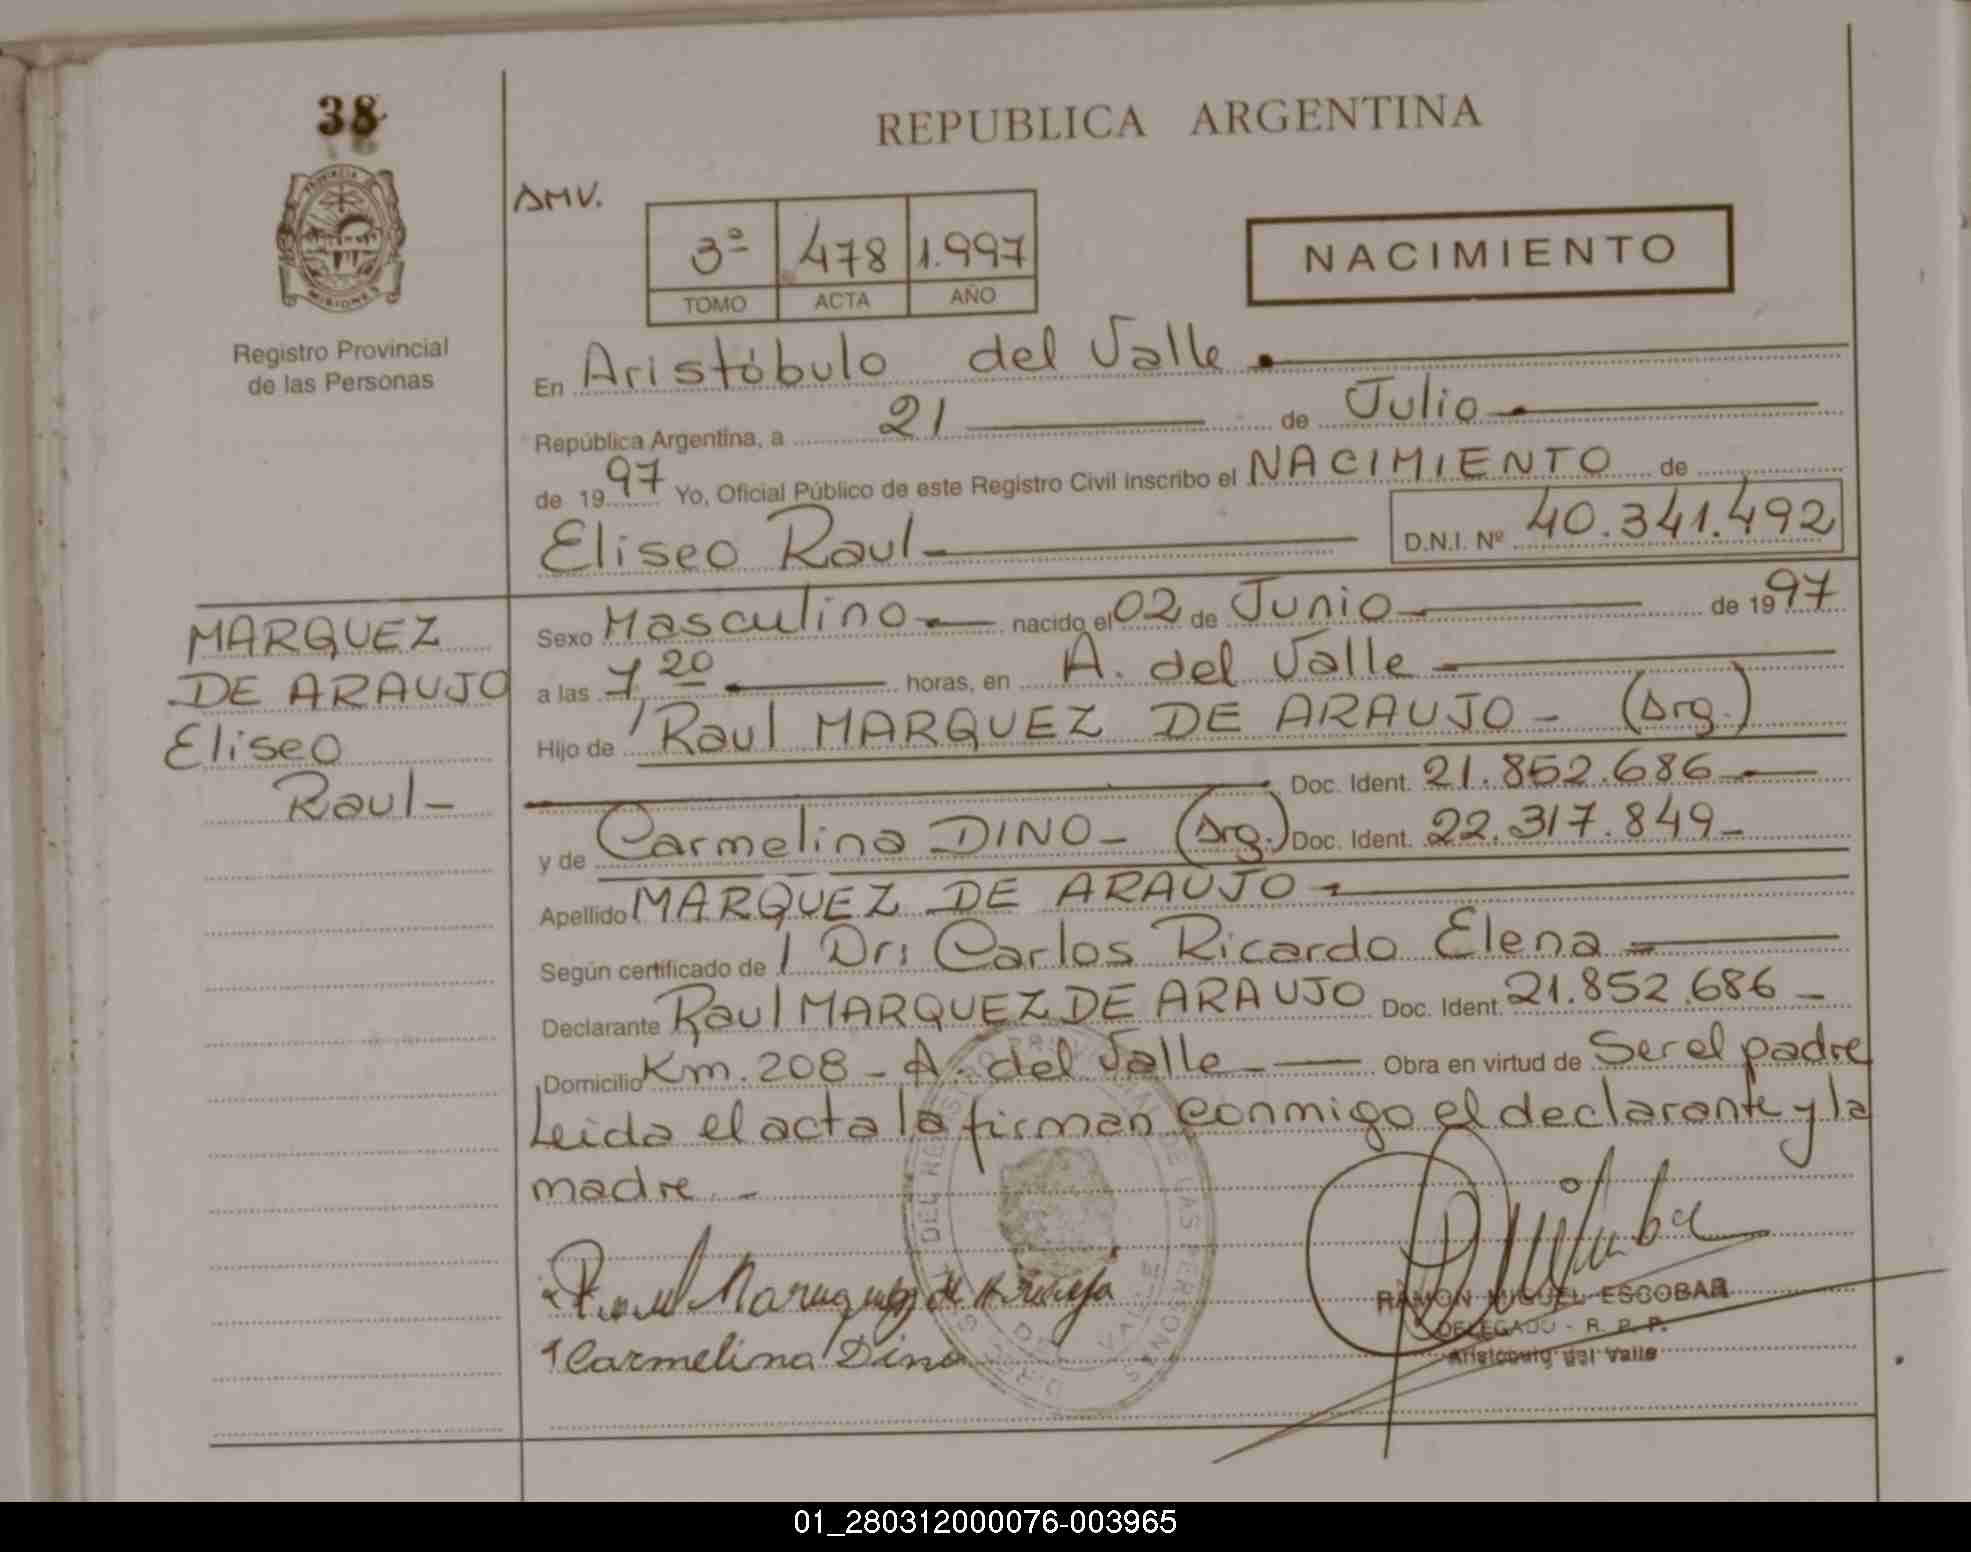 38
PROVINCIA DE
MISIONES
Registro Provincial
de las Personas
REPUBLICA ARGENTINA
AMV.
3ª 478 1.997
TOMO ACTA AÑO
NACIMIENTO
En Aristóbulo del Valle
República Argentina, a 21 de Julio
de 1997 Yo, Oficial Público de este Registro Civil inscribo el NACIMIENTO de
Eliseo Raul D.N.I. Nº 40.341.492
MARQUEZ
DE ARAUJO
Eliseo
Raul-
Sexo Masculino nacido el 02 de Junio de 1997
a las 7,20 horas, en A. del Valle
Hijo de Raul MARQUEZ DE ARAUJO - (Arg.)
Doc. Ident. 21.852.686
y de Carmelina DINO - (Arg.) Doc. Ident. 22.317.849-
Apellido MARQUEZ DE ARAUJO
Según certificado de Dr: Carlos Ricardo Elena
Declarante Raul MARQUEZ DE ARAUJO Doc. Ident. 21.852.686 -
Domicilio Km. 208 - A. del Valle - Obra en virtud de Ser el padre
Leida el acta la firman conmigo el declarante y la
madre. -
Carmelina Dino
RAMON MIGUEL ESCOBAR
DELEGADO - R. P. P.
Aristobulo del Valle
01_280312000076-003965